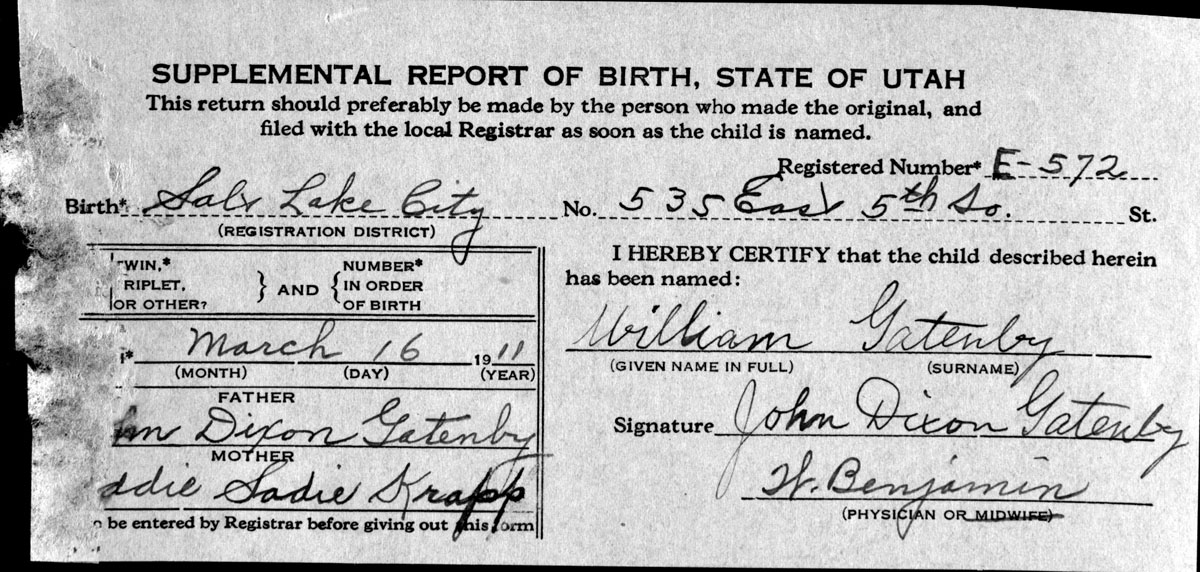 SUPPLEMENTAL REPORT OF BIRTH, STATE OF UTAH
This return should preferably be made by the person who made the original, and
filed with the local Registrar as soon as the child is named.
Registered Number* E-572
Birth* Salt Lake City No. 535 East 5th So. St.
(REGISTRATION DISTRICT)
TWIN,*
RIPLET,
OR OTHER?
} AND {
NUMBER*
IN ORDER
OF BIRTH
March 16 1911
(MONTH) (DAY) (YEAR)
FATHER
hn Dixon Gatenby
MOTHER
ddie Sadie Krapp
be entered by Registrar before giving out this form
I HEREBY CERTIFY that the child described herein
has been named:
William Gatenby
(GIVEN NAME IN FULL) (SURNAME)
Signature John Dixon Gatenby
W. Benjamin
(PHYSICIAN OR MIDWIFE)